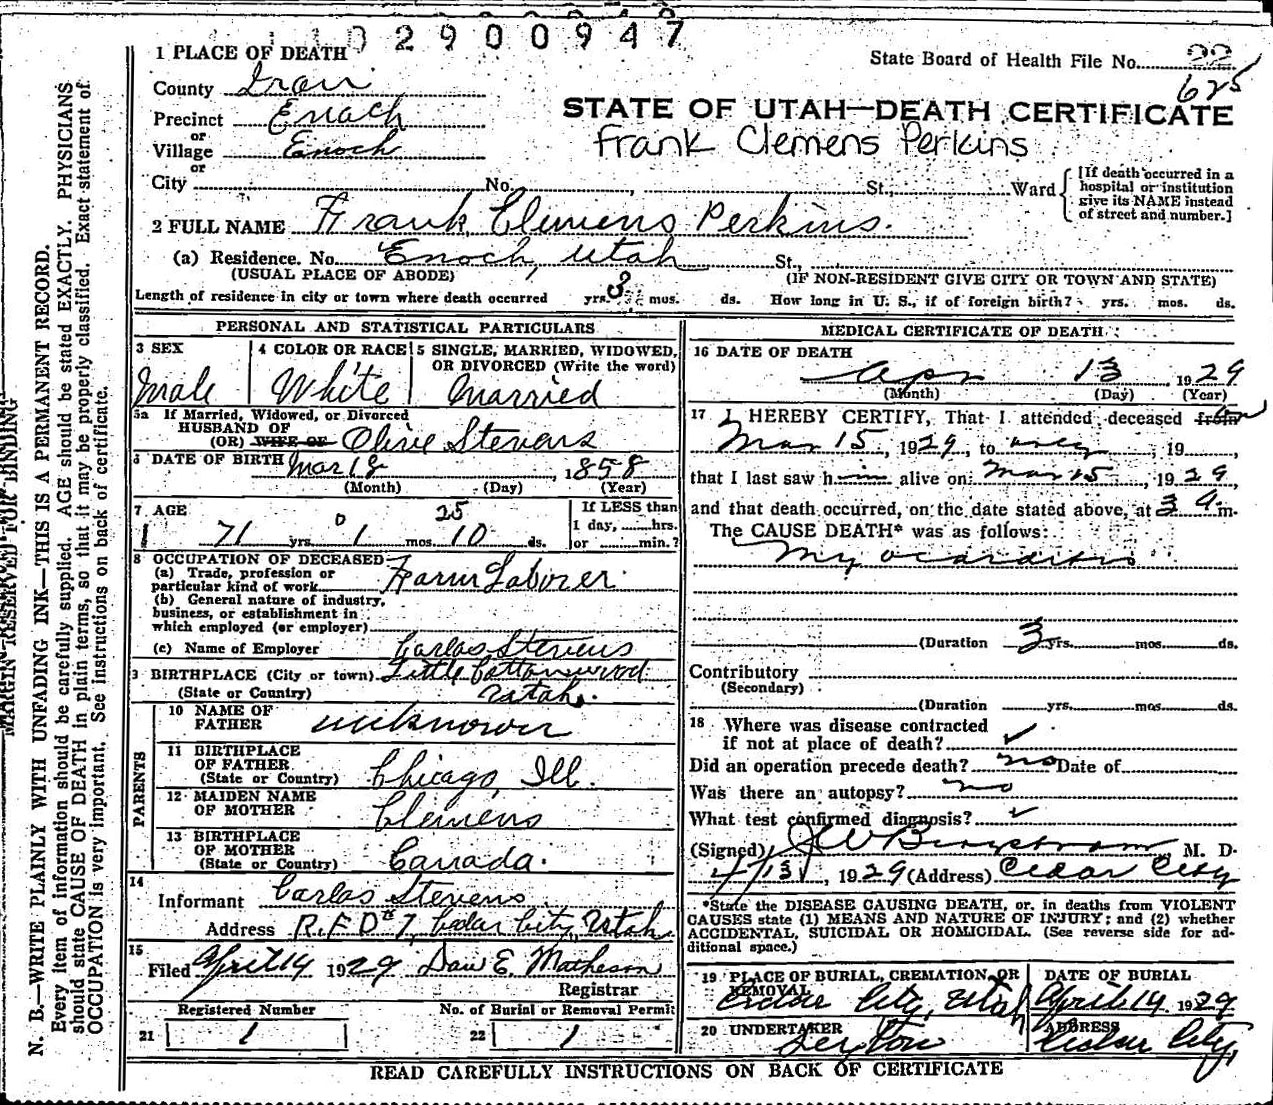 1 1 0 2 9 0 0 9 4 7
1 PLACE OF DEATH
State Board of Health File No. 22
625
County Iron
STATE OF UTAH—DEATH CERTIFICATE
Precinct Enoch
Frank Clemens Perkins
or
Village Enoch
or
City No. , St., Ward
[If death occurred in a hospital or institution give its NAME instead of street and number.]
2 FULL NAME Frank Clemens Perkins.
(a) Residence. No. Enoch, Utah St.,
(USUAL PLACE OF ABODE) (IF NON-RESIDENT GIVE CITY OR TOWN AND STATE)
Length of residence in city or town where death occurred yrs. 3 mos. ds. How long in U. S., if of foreign birth? yrs. mos. ds.
PERSONAL AND STATISTICAL PARTICULARS
3 SEX
Male
4 COLOR OR RACE
White
5 SINGLE, MARRIED, WIDOWED,
OR DIVORCED (Write the word)
Married
5a If Married, Widowed, or Divorced
HUSBAND OF
(OR) WIFE OF Olive Stevens
6 DATE OF BIRTH Mar 18, 1858
(Month) (Day) (Year)
7 AGE
71 yrs. 0 1 mos. 25 10 ds.
If LESS than
1 day, hrs.
or min.?
8 OCCUPATION OF DECEASED
(a) Trade, profession or
particular kind of work Farm Laborer.
(b) General nature of industry,
business, or establishment in
which employed (or employer)
(c) Name of Employer Carlos Stevens
9 BIRTHPLACE (City or town) Little Cottonwood
(State or Country) Utah.
PARENTS
10 NAME OF
FATHER unknown
11 BIRTHPLACE
OF FATHER
(State or Country) Chicago, Ill.
12 MAIDEN NAME
OF MOTHER Clemens
13 BIRTHPLACE
OF MOTHER
(State or Country) Canada.
14
Informant Carlos Stevens
Address R.F.D #1, Cedar City, Utah
15
Filed April 14 1929 Daw E. Matheson
Registrar
Registered Number No. of Burial or Removal Permit
21 1 22 1
MEDICAL CERTIFICATE OF DEATH
16 DATE OF DEATH
Apr 13, 1929
(Month) (Day) (Year)
17 I HEREBY CERTIFY, That I attended deceased from on
Mar 15, 1929, to only, 19 ,
that I last saw him alive on Mar 15, 1929,
and that death occurred, on the date stated above, at 3 a.m.
The CAUSE DEATH* was as follows:
Myocarditis
(Duration 3 yrs. mos. ds.
Contributory
(Secondary)
(Duration yrs. mos. ds.
18 Where was disease contracted
if not at place of death? ✓
Did an operation precede death? no Date of
Was there an autopsy? no
What test confirmed diagnosis? ✓
(Signed) J W Bergstrom M. D.
4/13, 1929 (Address) Cedar City
*State the DISEASE CAUSING DEATH, or, in deaths from VIOLENT
CAUSES state (1) MEANS AND NATURE OF INJURY; and (2) whether
ACCIDENTAL, SUICIDAL OR HOMICIDAL. (See reverse side for ad-
ditional space.)
19 PLACE OF BURIAL, CREMATION, OR
REMOVAL
Cedar City, Utah
DATE OF BURIAL
April 14 1929
20 UNDERTAKER
Sexton
ADDRESS
Cedar City,
READ CAREFULLY INSTRUCTIONS ON BACK OF CERTIFICATE
MARGIN RESERVED FOR BINDING
N. B.—WRITE PLAINLY WITH UNFADING INK—THIS IS A PERMANENT RECORD.
Every item of information should be carefully supplied. AGE should be stated EXACTLY. PHYSICIANS
should state CAUSE OF DEATH in plain terms, so that it may be properly classified. Exact statement of
OCCUPATION is very important. See instructions on back of certificate.